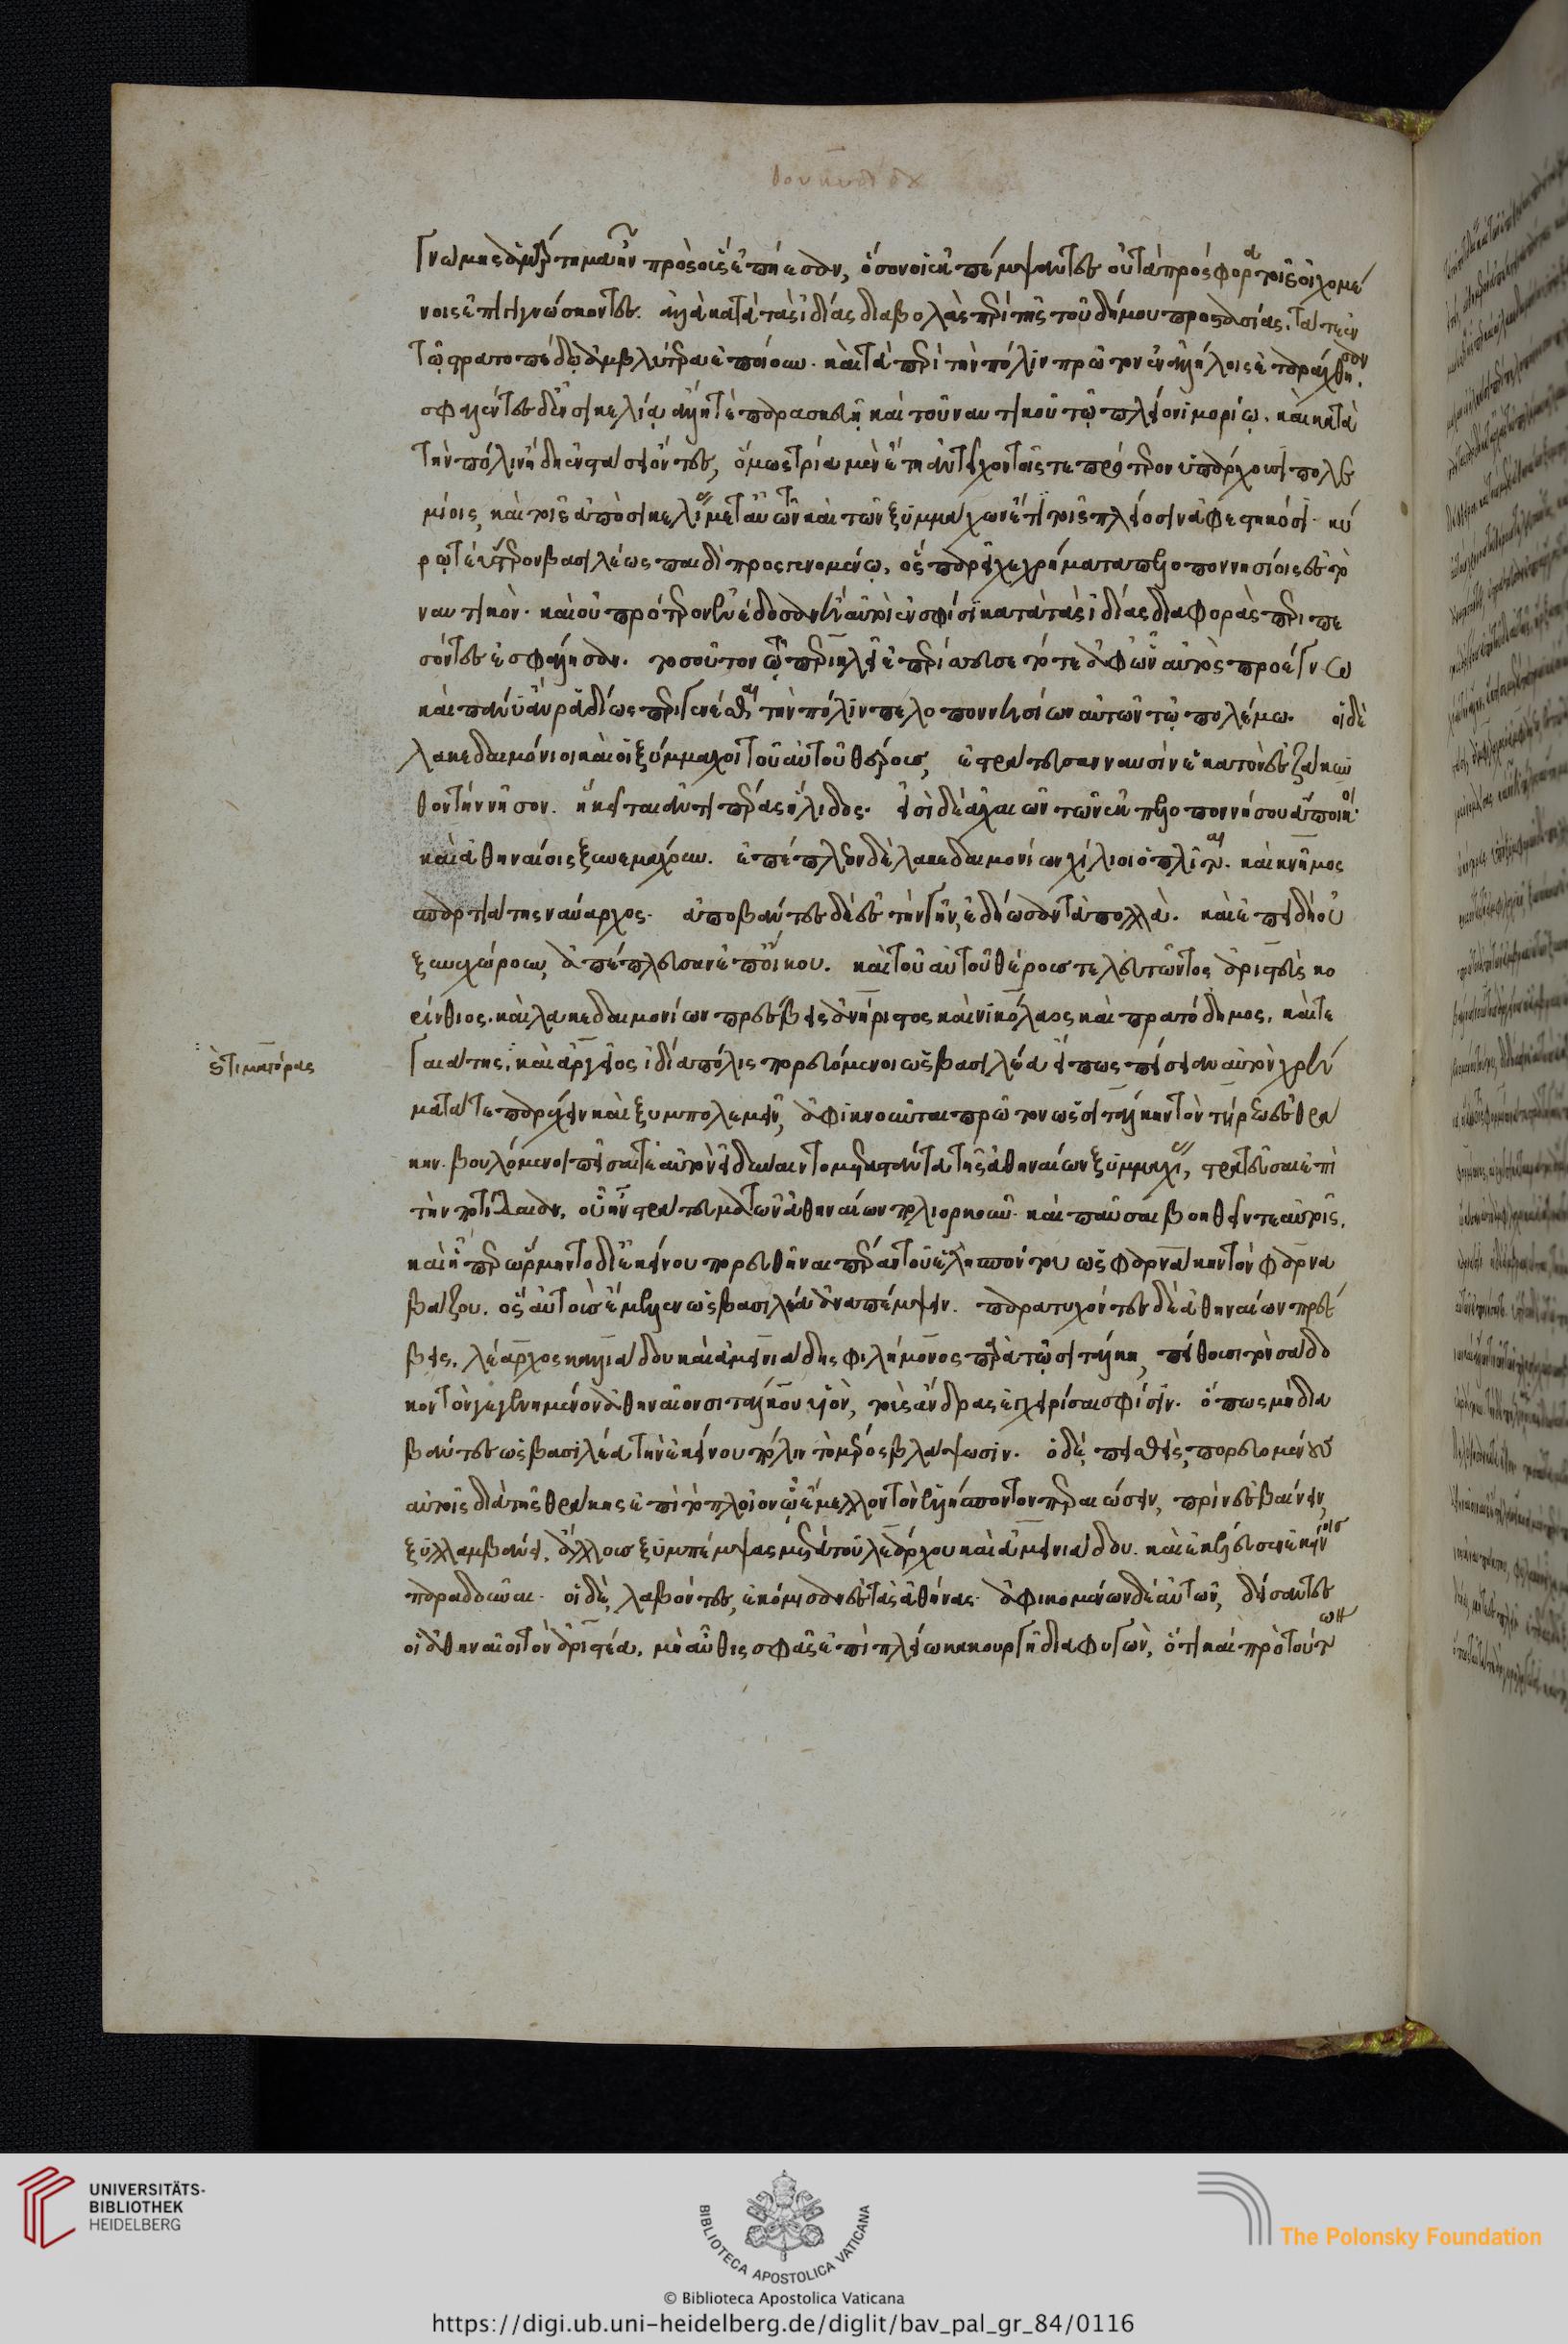 γνώμης ἁμάρτημα ἦν πρὸς οὓς ἐπήεσαν, ὅσον οἱ ἐκπέμψαντες οὐ τὰ πρόσφορα τοῖς οἰχομέ
νοις ἐπιγιγνώσκοντες. ἀλλὰ κατὰ τὰς ἰδίας διαβολὰς περὶ τῆς τοῦ δήμου προστασίας. τά τε ἐν
τῷ στρατοπέδῳ ἀμβλύτερα ἐποίουν. καὶ τὰ περὶ τὴν πόλιν πρῶτον ἐν ἀλλήλοις ἐταράχθησαν.
σφαλέντες δ' ἐν σικελίᾳ ἄλλῃ τὲ παρασκευῇ καὶ τοῦ ναυτικοῦ τῷ πλείονι μορίῳ. καὶ κατὰ
τὴν πόλιν ἤδη ἐν στάσει ὄντες, ὅμως τρία μὲν ἔτη ἀντεῖχον τοῖς τε πρότερον ὑπάρχουσι πολε
μίοις, καὶ τοῖς ἀπὸ σικελίας μετ' αὐτῶν καὶ τῶν ξυμμάχων ἔτι τοῖς πλείοσιν ἀφεστηκόσι. κύ
ρῳ τὲ ὕστερον βασιλέως παιδὶ προσγενομένῳ, ὃς παρεῖχε χρήματα πελοποννησίοις ἐς τὸ
ναυτικόν. καὶ οὐ πρότερον ἐνέδοσαν ἢ αὐτοὶ ἐν σφίσι κατὰ τὰς ἰδίας διαφορὰς περιπε
σόντες ἐσφάλησαν. τοσοῦτον τῷ περικλεῖ ἐπερίσσευσε τότε ἀφ' ὧν αὐτὸς προέγνω
καὶ πάνυ ἂν ῥαδίως περιγενέσθαι τὴν πόλιν πελοποννησίων αὐτῶν τῷ πολέμω. οἱ δὲ
λακεδαιμόνιοι καὶ οἱ ξύμμαχοι τοῦ αὐτοῦ θέρους, ἐστράτευσαν ναυσὶν ἑκατὸν ἐς ζάκυν
θον τὴν νῆσον. ἣ κεῖται ἀντιπέρας ἤλιδος. εἰσὶ δὲ ἀχαιῶν τῶν ἐκ πελοποννήσου ἄποικοι.
καὶ ἀθηναίοις ξυνεμάχουν. ἐπέπλεον δὲ λακεδαιμονίων χίλιοι ὁπλῖται. καὶ κνῆμος
σπαρτιάτης ναύαρχος. ἀποβάντες δὲ ἐς τὴν γῆν, ἐδήωσαν τὰ πολλὰ. καὶ ἐπειδὴ οὐ
ξυνεχώρουν, ἀπέπλευσαν ἐπ' οἴκου. καὶ τοῦ αὐτοῦ θέρους τελευτῶντος ἀριστεὺς κο
ρίνθιος. καὶ λακεδαιμονίων πρέσβεις ἀνήριστος καὶ νικόλαος καὶ πρατόδημος. καὶ τε
γαιάτης. καὶ ἀργεῖος ἰδία πόλις πορευόμενοι ὡς βασιλέα εἴ πως πείσειαν αὐτὸν χρή
ματά τε παρέχειν καὶ ξυμπολεμεῖν, ἀφικνοῦνται πρῶτον ὡς σιτάλκην τὸν τήρεως ἐς θρά
κην. βουλόμενοι πεῖσαί τε αὐτὸν εἰ δύναιντο μεταστάντα τῆς ἀθηναίων ξυμμαχίας, στρατεῦσαι ἐπὶ
τὴν ποτίδαιαν, οὗ ἦν στράτευμα τῶν ἀθηναίων πολιορκοῦν. καὶ παῦσαι βοηθεῖν τε αὐτοῖς.
καὶ ᾗπερ ὥρμηντο δι' ἐκείνου πορευθῆναι πέραν τοῦ ἑλλησπόντου ὡς φαρνάκην τὸν φαρνα
βάζου. ὃς αὐτοὺς ἔμελλεν ὡς βασιλέα ἀναπέμψειν. παρατυχόντες δὲ ἀθηναίων πρέσ
βεις. λέαρχος καλλιάδου καὶ ἀμεινιάδης φιλήμονος παρὰ τῷ σιτάλκῃ, πείθουσι τὸν σάδο
κον τὸν γεγενημένον ἀθηναῖον σιτάλκου υἱόν, τοὺς ἄνδρας ἐγχειρίσαι σφίσιν. ὅπως μὴ δια
βάντες ὡς βασιλέα τὴν ἐκείνου πόλιν τὸ μέρος βλάψωσιν. ὁ δὲ, πεισθεὶς, πορευομένους
αὐτοὺς διὰ τῆς θράκης ἐπὶ τὸ πλοῖον ᾧ ἔμελλον τὸν ἑλλήσποντον περαιώσειν, πρὶν ἐσβαίνειν
ξυλλαμβάνει. ἄλλους ξυμπέμψας μετὰ τοῦ λεάρχου καὶ ἀμεινιάδου. καὶ ἐκέλευσεν ἐκείνοις
παραδοῦναι. οἱ δὲ, λαβόντες, ἐκόμισαν ἐς τὰς ἀθήνας. ἀφικομένων δὲ αὐτῶν, δείσαντες
οἱ ἀθηναῖοι τὸν ἀριστέα, μὴ αὖθις σφᾶς ἔτι πλείω κακουργῇ διαφυγών, ὅτι καὶ πρὸ τούτων
UNIVERSITÄTS-
BIBLIOTHEK
HEIDELBERG
BIBLIOTECA APOSTOLICA VATICANA
The Polonsky Foundation
© Biblioteca Apostolica Vaticana
https://digi.ub.uni-heidelberg.de/diglit/bav_pal_gr_84/0116